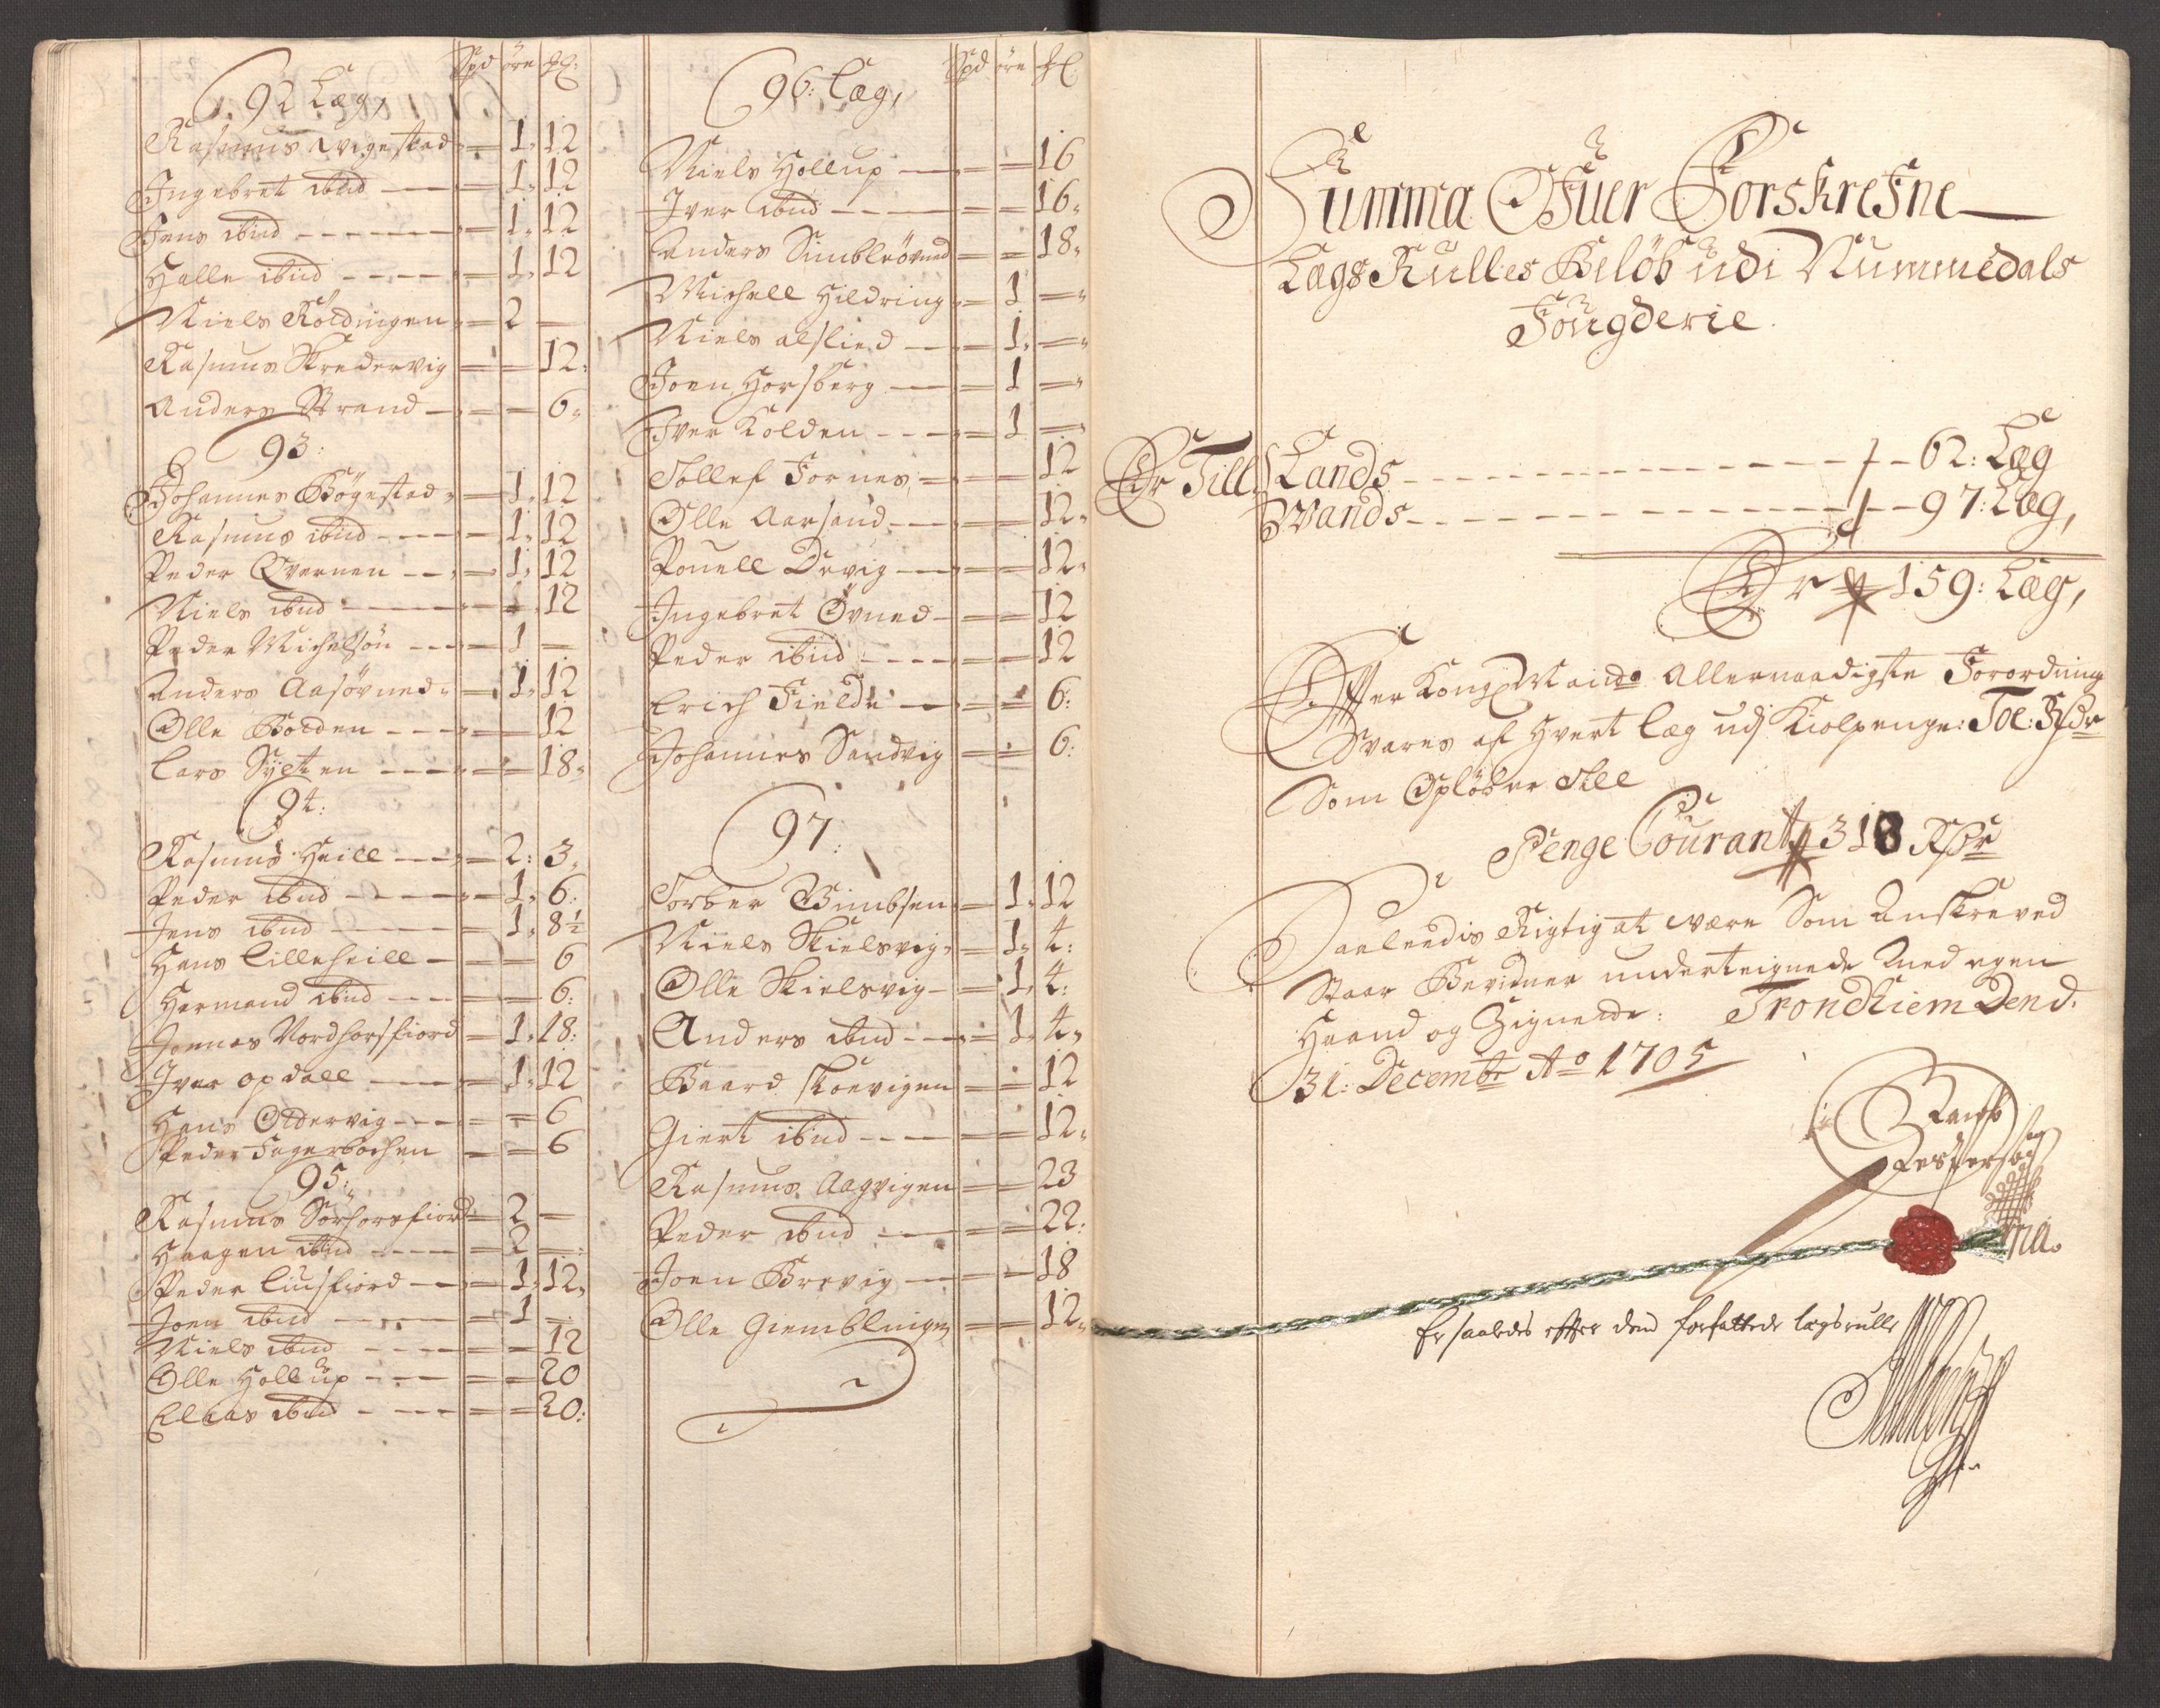 Spd öre
92 Læg,
Rasmus = 1. 12
Ingebret ibid = 1. 12
Jens ibid = 1. 12
Halle ibid = 1. 12
Niels Röldingen = 2 —
Rasmus Skredervig = = 12:
Anders Strand = = 6
93:
Johannes Bögestad = 1. 12
Rasmus ibid = 1. 12
Peder Qvernen = 1. 12
Niels ibid = 12
Peder Michelsön = 1 —
Anders Aasövned = 1. 12
Olle = = 12
Lars = = 18
94:
Rasmus Heill = 2: 3
Peder ibid = 1. 6:
Jens ibid = 1. 8½
Hans Lilleheill = = 6
Hermand ibid = = 6:
Joenas Nordhorsfiord = 1. 18:
Iver Opdall = 1. 12
Hans Oldervig = = 6
Peder Fagerbachen = = 6
95:
Rasmus Sörhorsfiord = 2 —
Haagen ibid = 2 —
Peder Liusfiord = 1. 12
Joen ibid = 1 —
Niels ibid = = 12
Olle Hollup = = 20
Elias ibid = = 20:
Spd öre
96: Læg,
Niels Hollup = = 16
Iver ibid = = 16
Anders Simbleövned = = 18
Michell Hildring = 1 —
Niels Alslied = 1. —
Joen Horsberg = 1 —
Iver Kolden = 1 —
Tollef Fornes = = 12
Olle Aarsand = = 12
Pouell Devig = = 12
Ingebret Övned = = 12
Peder ibid = = 12
Erich Fielde = = 6:
Johannes Sandvig = = 6:
97:
Torber Wimbsen = 1. 12
Niels Skielsvig = 1. 4:
Olle Skielsvig = 1. 4:
Anders ibid = 1. 4
Baard Skoevigen = = 12
Giert ibid = = 12
Rasmus Aagvigen = = 23
Peder ibid = = 22:
Joen Brevig = = 18
Olle Giemblingen = = 12
Summa Ofuer Forskrefne
Lægs Rulles Belöb udi Nummedals
Fougderie.
Er Till Lands 62: Læg
Wands 97: Læg,
Er 159: Læg,
Efter Kongl Maids Allernaadigste Forordning
Svares af Hvert Læg udj Kiolpenge: Toe: Rdr
Som Oplöber till
Penge Courant 318 Rdr
Saaleedis Rigtig at være Som Anskreved
Staar Bevidner underteignede Med egen
Haand og Zignete: Trondhiem Dend.
31: Decembr Ao 1705
Er saaledes efter dend forfattede lægsrulle